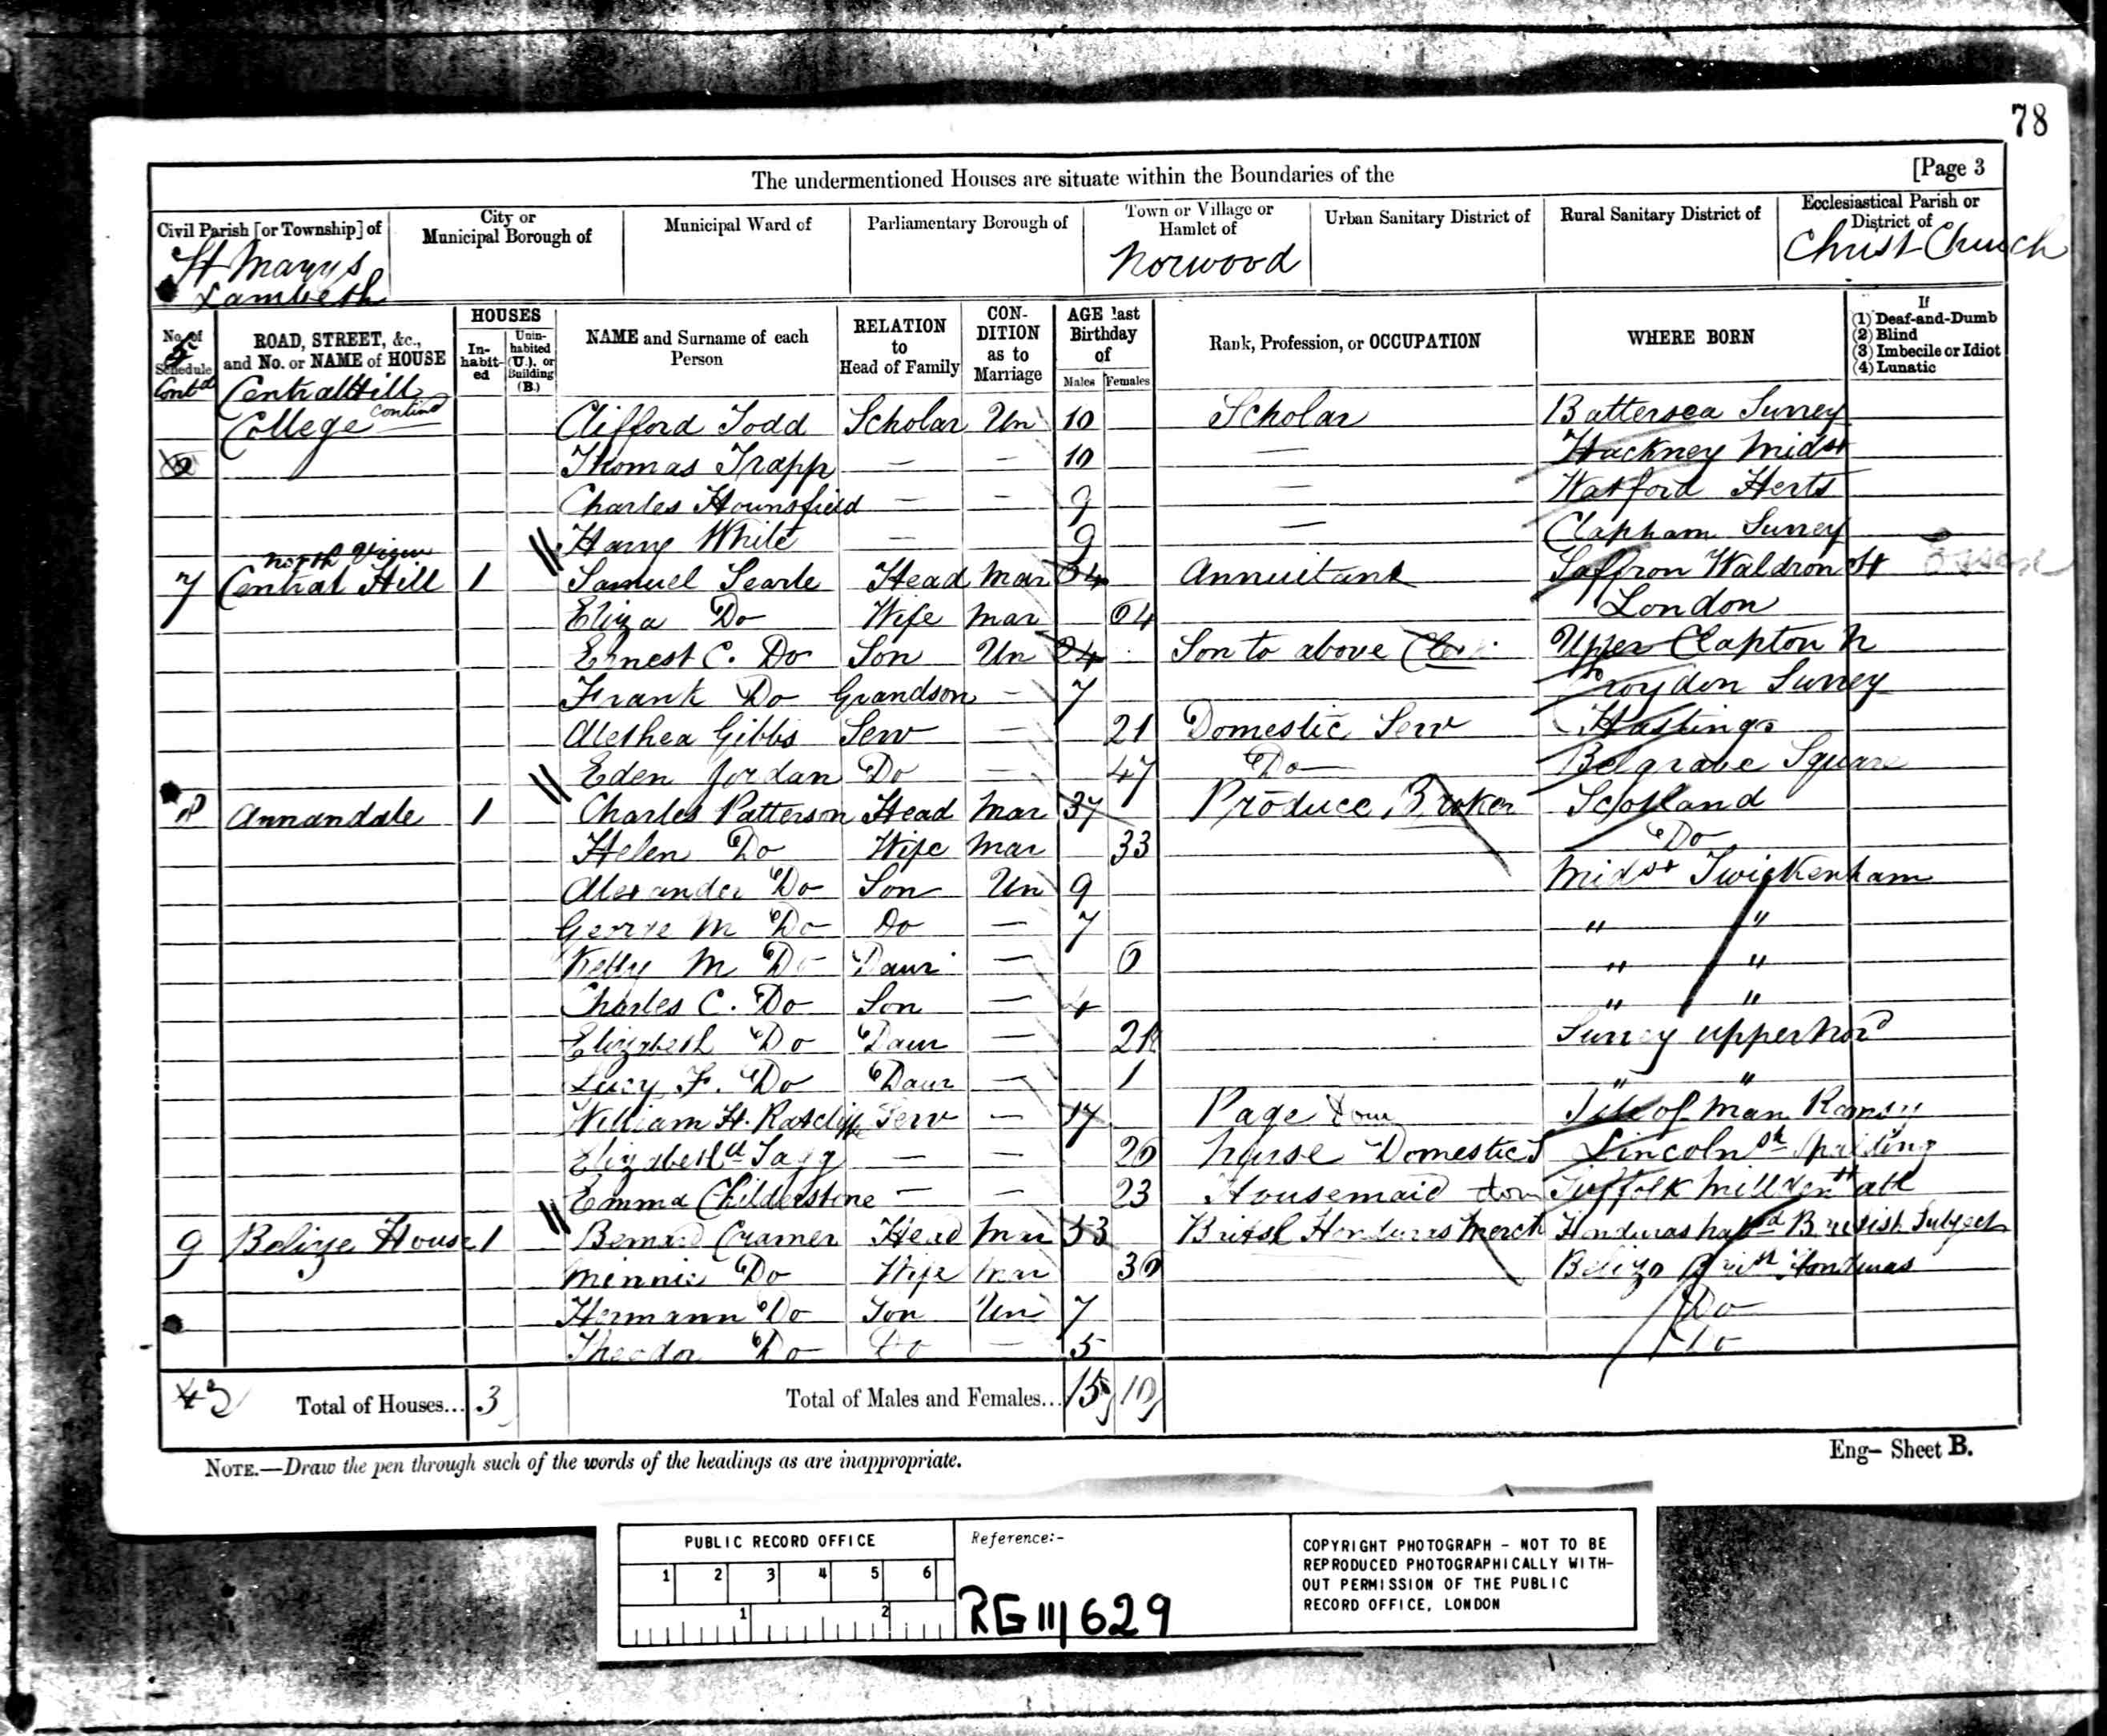 78
The undermentioned Houses are situate within the Boundaries of the [Page 3
Civil Parish [or Township] of
City or Municipal Borough of
Municipal Ward of
Parliamentary Borough of
Town or Village or Hamlet of
Urban Sanitary District of
Rural Sanitary District of
Ecclesiastical Parish or District of
St Marys Lambeth
Norwood
Christ Church
No. of Schedule
ROAD, STREET, &c., and No. or NAME of HOUSE
HOUSES
In-habit-ed
Unin-habited (U.), or Building (B.)
NAME and Surname of each Person
RELATION to Head of Family
CON-DITION as to Marriage
AGE last Birthday of
Males Females
Rank, Profession, or OCCUPATION
WHERE BORN
If
(1) Deaf-and-Dumb
(2) Blind
(3) Imbecile or Idiot
(4) Lunatic
5 Contd Central Hill
College contind Clifford Todd Scholar Un 10 Scholar Battersea Surrey
Thomas Trapp — — 10 — Hackney Midsx
Charles Hounsfield — — 9 — Watford Herts
Harry White — 9 — Clapham Surrey
North View
7 Central Hill 1 Samuel Searle Head Mar Annuitant Saffron Waldron Essex
Eliza Do Wife Mar 64 London
Ernest C. Do Son Un 24 Son to above Upper Clapton
Frank Do Grandson — 7 Croydon Surrey
Alethea Gibbs Serv — 21 Domestic Serv Hastings
Eden Jordan Do — 47 Do Belgrave Square
8 Annandale 1 Charles Patterson Head Mar 37 Produce Broker Scotland
Helen Do Wife Mar 33 Do
Alexander Do Son Un 9 Midsx Twickenham
George M Do Do — 7 " "
Kelly M Do Daur — 6 " "
Charles C. Do Son — 4 " "
Elizabeth Do Daur — 2 Surrey upper Nord
Lucy F. Do Daur — 1 " "
William H. Ratcliffe Serv — 17 Page Dom Isle of Man Ramsy
Elizabeth Tagg — — 26 Nurse Domestic S Lincolnsh Spalding
Emma Childerstone — — 23 Housemaid dom Suffolk Mildenhall
9 Belize House 1 Bernard Cramer Head Mar 33 British Honduras Merch Honduras British Subject
Minnie Do Wife Mar 30 Belize British Honduras
Hermann Do Son Un 7 Do
Theodor Do Do — 5 Do
Total of Houses... 3 Total of Males and Females... 15 10
NOTE.—Draw the pen through such of the words of the headings as are inappropriate.
Eng– Sheet B.
PUBLIC RECORD OFFICE
1 2 3 4 5 6
1 2
Reference:-
RG 11/629
COPYRIGHT PHOTOGRAPH – NOT TO BE
REPRODUCED PHOTOGRAPHICALLY WITH-
OUT PERMISSION OF THE PUBLIC
RECORD OFFICE, LONDON